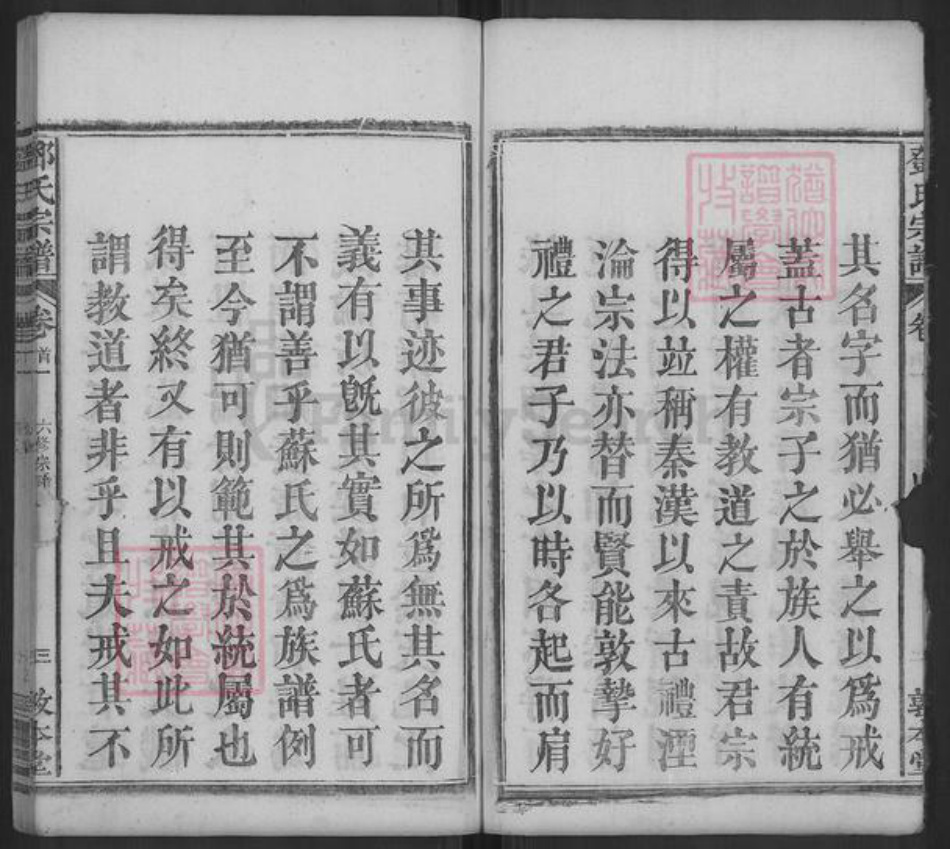 其名字而猶必舉之以爲戒
蓋古者宗子之於族人有統
屬之權有教道之責故君宗
得以並稱秦漢以來古禮湮
淪宗法亦替而賢能敦摯好
禮之君子乃以時各起而肩
其事迹彼之所爲無其名而
義有以既其實如蘇氏者可
不謂善乎蘇氏之爲族譜例
至今猶可則範其於統屬也
得矣終又有以戒之如此所
謂教道者非乎且夫戒其不
鄧氏宗譜
卷首一
三
敦本堂
FamilySearch